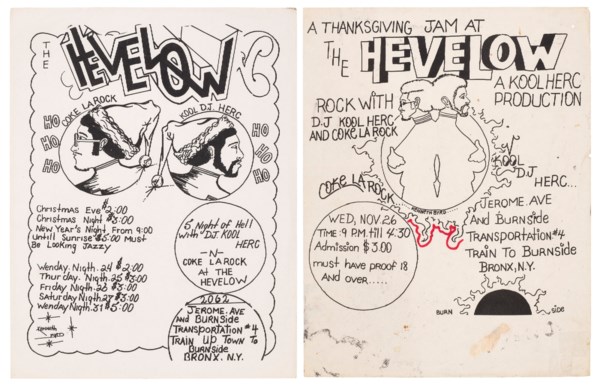 THE
HEVELOW
COKE LA ROCK
KOOL D.J. HERC
HO
HO
HO
HO
HO
HO
Christmas Eve $2:00
Christmas Night $3:00
New Year's Night From 9:00
Untill Sunrise $5:00 Must
Be Looking Jazzy
Wenday. Nigth. 24 $2:00
Thurday. Nigth. 25 $3:00
Friday Nigth. 26 $3:00
Saturday Nigth 27 $3:00
Wenday Nigth. 31 $5:00
5 Night of Hell
With DJ KOOL
HERC
-N-
COKE LA ROCK
AT THE
HEVELOW
2062
JEROME. AVE
AND BURNSIDE
TRANSPORTATION #4
TRAIN UP TOWN TO
BURNSIDE
BRONX. N.Y.
A THANKSGIVING JAM AT
THE HEVELOW
A KOOL HERC
PRODUCTION
ROCK WITH
D.J KOOL HERC
AND COKE LA ROCK
N
KOOL
DJ
HERC...
COKE LA ROCK
WED, NOV. 26
TIME: 9 P.M. till 4:30
Admission $3.00
must have proof 18
And over.....
JEROME. AVE
AND BURNSIDE
TRANSPORTATION #4
TRAIN TO BURNSIDE
BRONX, N.Y.
BURN
SIDE